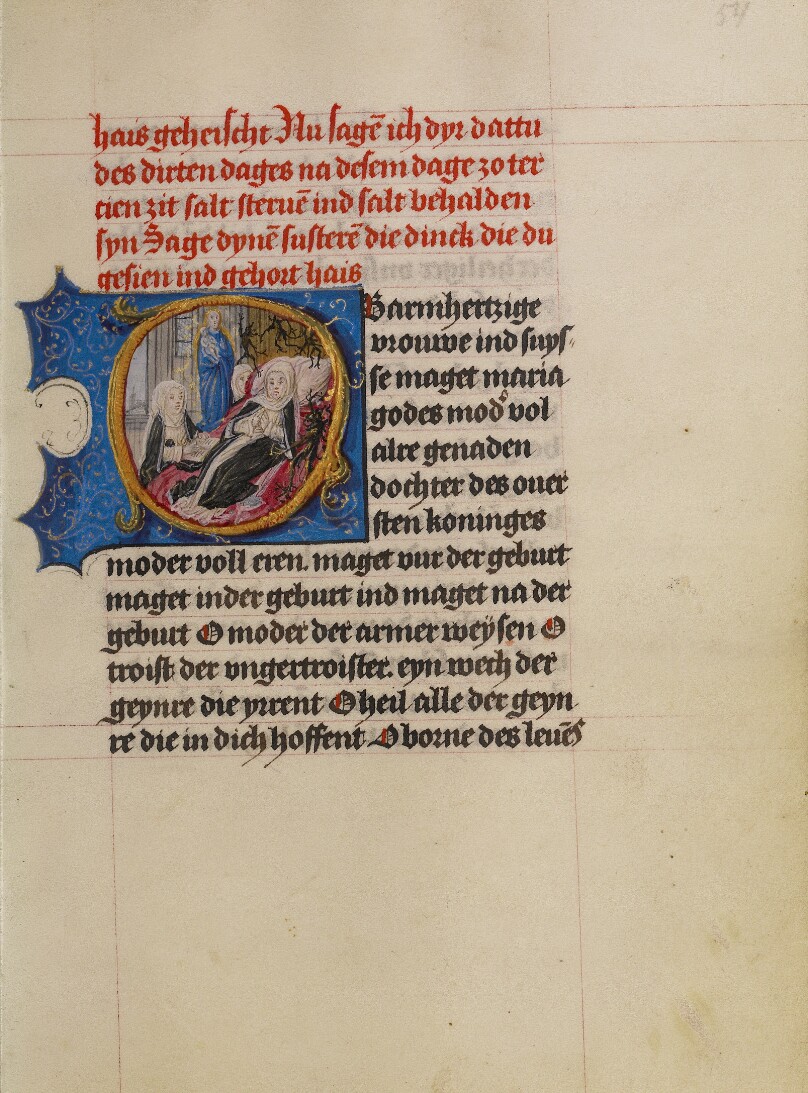 54
hais geheischt Nu sagē ich dyr dattu
des dirten dages na desem dage zo ter
cien zit salt steruē ind salt behalden
syn Sage dynē susterē die dinck die du
gesien ind gehort hais
O Barmhertzige
vrouwe ind suys
se maget maria
godes mod͛ vol
alre genaden
dochter des ouer
sten koninges
moder voll eren. maget vur der geburt
maget inder geburt ind maget na der
geburt O moder der armer weÿsen O
troist der vngertroister. eyn wech der
geynre die yrrent O heil alle der geyn
re die in dich hoffent O borne des leuēs